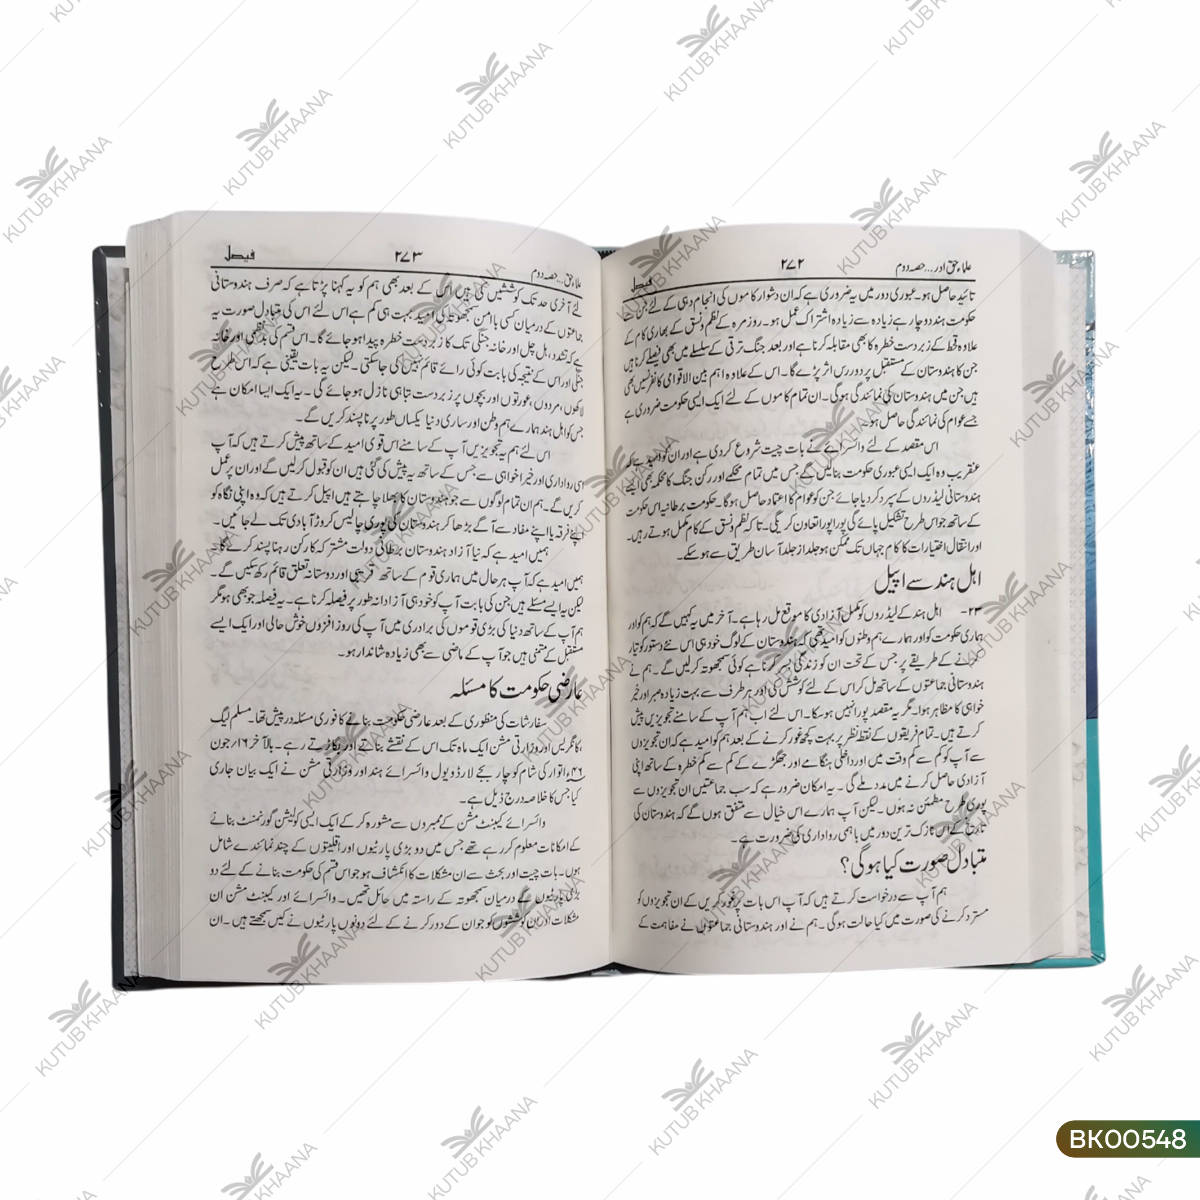 علماء حق اور... حصہ دوم
۲۷۲
فیصل
تائید حاصل ہو۔ عبوری دور میں یہ ضروری ہے کہ ان دشوار کاموں کی انجام دہی کے لئے جن سے
حکومت ہند دوچار ہے زیادہ سے زیادہ اشتراک عمل ہو۔ روز مرہ کے نظم و نسق کے بھاری کام کے
علاوہ قحط کے زبردست خطرہ کا بھی مقابلہ کرنا ہے اور بعد جنگ ترقی کے سلسلے میں بھی فیصلے کرنا ہیں
جن کا ہندوستان کے مستقبل پر دور رس اثر پڑے گا۔ اس کے علاوہ اہم بین الاقوامی کانفرنسیں بھی
ہیں جن میں ہندوستان کی نمائندگی ہوگی۔ ان تمام کاموں کے لئے ایک ایسی حکومت ضروری ہے
جسے عوام کی نمائندگی حاصل ہو۔
اس مقصد کے لئے وائسرائے نے بات چیت شروع کر دی ہے اور ان کو امید ہے کہ
عنقریب وہ ایک ایسی عبوری حکومت بنالیں گے جس میں تمام محکمے اور رکن جنگ کا محکمہ بھی ایسے
ہندوستانی لیڈروں کے سپرد کر دیا جائے جن کو عوام کا اعتماد حاصل ہوگا۔ حکومت برطانیہ اس حکومت
کے ساتھ جو اس طرح تشکیل پائے گی پورا پورا تعاون کریگی۔ تاکہ نظم و نسق کے کام مکمل ہوتے رہیں۔
اور انتقال اختیارات کا کام جہاں تک ممکن ہو جلد از جلد آسان طریق سے ہو سکے۔
اہل ہند سے اپیل
۲۳- اہل ہند کے لیڈروں کو مکمل آزادی کا موقع مل رہا ہے۔ آخر میں یہ کہیں گے کہ ہم کو اور
ہماری حکومت کو اور ہمارے ہم وطنوں کو امید تھی کہ ہندوستان کے لوگ خود ہی اس نئے دستور کو تیار
کرنے کے طریقے پر جس کے تحت ان کو زندگی بسر کرنا ہے کوئی سمجھوتہ کر لیں گے۔ ہم نے
ہندوستانی جماعتوں کے ساتھ مل کر اس کے لئے کوشش کی اور ہر طرف سے بہت زیادہ صبر اور خیر
خواہی کا مظاہرا ہوا۔ مگر یہ مقصد پورا نہیں ہوسکا۔ اس لئے اب ہم آپ کے سامنے تجویزیں پیش
کرتے ہیں۔ تمام فریقوں کے نقطۂ نظر پر بہت کچھ غور کرنے کے بعد ہم کو امید ہے کہ ان تجویزوں
سے آپ کو کم سے کم وقت میں اور داخلی ہنگامے اور جھگڑے کے کم سے کم خطرہ کے ساتھ اپنی
آزادی حاصل کرنے میں مدد ملے گی۔ یہ امکان ضرور ہے کہ سب جماعتیں ان تجویزوں سے
پوری طرح مطمئن نہ ہوں۔ لیکن آپ ہمارے اس خیال سے متفق ہوں گے کہ ہندوستان کی
تاریخ کے اس نازک ترین دور میں باہمی رواداری کی ضرورت ہے۔
متبادل صورت کیا ہوگی؟
ہم آپ سے درخواست کرتے ہیں کہ آپ اس بات پر غور کریں کہ ان تجویزوں کو
مسترد کرنے کی صورت میں کیا حالت ہوگی۔ ہم نے اور ہندوستانی جماعتوں نے مفاہمت کے
علماء حق... حصہ دوم
۲۷۳
فیصل
لئے آخری حد تک کوششیں کی ہیں اس کے بعد بھی ہم کو یہ کہنا پڑتا ہے کہ صرف ہندوستانی
جماعتوں کے درمیان کسی با امن سمجھوتہ کی امید بہت ہی کم ہے اس لئے اس کی متبادل صورت یہ
ہے کہ تشدد، ہل چل اور خانہ جنگی تک کا زبردست خطرہ پیدا ہو جائے گا۔ اس قسم کی بدنظمی اور خانہ
جنگی اور اس کے نتیجہ کی بابت کوئی رائے قائم نہیں کی جاسکتی۔ لیکن یہ بات یقینی ہے کہ اس طرح
لاکھوں مردوں، عورتوں اور بچوں پر زبردست تباہی نازل ہو جائے گی۔ یہ ایک ایسا امکان ہے
جس کو اہل ہند ہمارے ہم وطن اور ساری دنیا یکساں طور پر نا پسند کریں گے۔
اس لئے ہم یہ تجویزیں آپ کے سامنے اس قوی امید کے ساتھ پیش کرتے ہیں کہ آپ
اسی رواداری اور خیر خواہی سے جس کے ساتھ یہ پیش کی گئی ہیں ان کو قبول کر لیں گے اور ان پر عمل
کریں گے۔ ہم ان تمام لوگوں سے جو ہندوستان کا بھلا چاہتے ہیں اپیل کرتے ہیں کہ وہ اپنی نگاہ کو
اپنے فرقہ یا اپنے مفاد سے آگے بڑھا کر ہندوستان کی پوری چالیس کروڑ آبادی تک لے جائیں۔
ہمیں امید ہے کہ نیا آزاد ہندوستان برطانی دولت مشترکہ کا رکن رہنا پسند کرے گا۔
ہمیں امید ہے کہ آپ ہر حال میں ہماری قوم کے ساتھ قریبی اور دوستانہ تعلق قائم رکھ سکیں گے۔
لیکن یہ ایسے مسئلے ہیں جن کی بابت آپ کو خود ہی آزادانہ طور پر فیصلہ کرنا ہے۔ یہ فیصلہ جو بھی ہو مگر
ہم آپ کے ساتھ دنیا کی بڑی قوموں کی برادری میں آپ کی روز افزوں خوش حالی اور ایک ایسے
مستقبل کے متمنی ہیں جو آپ کے ماضی سے بھی زیادہ شاندار ہو۔
عارضی حکومت کا مسئلہ
سفارشات کی منظوری کے بعد عارضی حکومت بنانے کا فوری مسئلہ در پیش تھا۔ مسلم لیگ
کانگریس اور وزارتی مشن ایک ماہ تک اس کے نقشے بناتے اور بگاڑتے رہے۔ بالآخر ۱۶ جون
۴۶ء اتوار کی شام کو چار بجے لارڈ ویول وائسرائے ہند اور وزارتی مشن نے ایک بیان جاری
کیا جس کا خلاصہ درج ذیل ہے۔
وائسرائے کیبنٹ مشن کے ممبروں سے مشورہ کر کے ایک ایسی کولیشن گورنمنٹ بنانے
کے امکانات معلوم کر رہے تھے جس میں دو بڑی پارٹیوں اور اقلیتوں کے چند نمائندے شامل
ہوں۔ بات چیت اور بحث سے ان مشکلات کا انکشاف ہو جو اس قسم کی حکومت بنانے کے لئے دو
بڑی پارٹیوں کے درمیان سمجھوتہ کے راستہ میں حائل تھیں۔ وائسرائے اور کیبنٹ مشن ان
مشکلات اور ان کوششوں کو جو ان کے دور کرنے کے لئے دونوں پارٹیوں نے کیں سمجھتے ہیں۔ ان
KUTUB KHAANA
BK00548